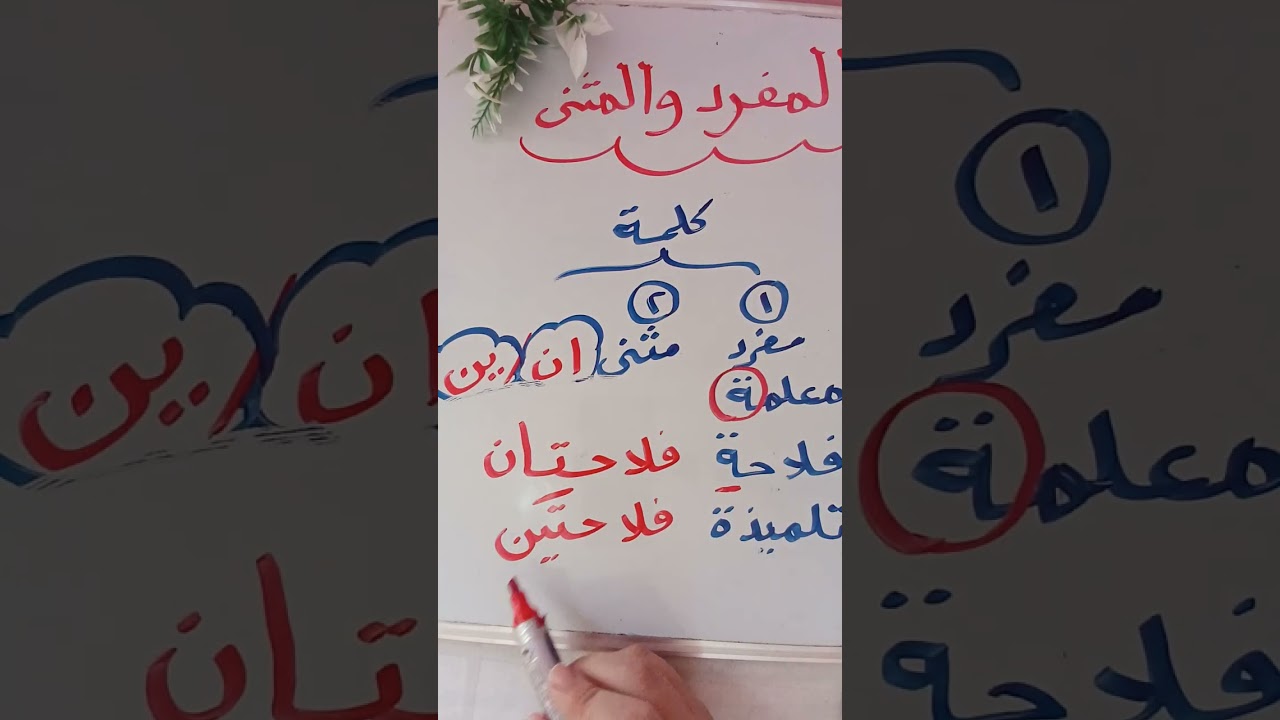 المفرد والمثنى
كلمة
١ ٢
مفرد مثنى ان / ين
معلمة
فلاحة فلاحتان
تلميذة فلاحتين